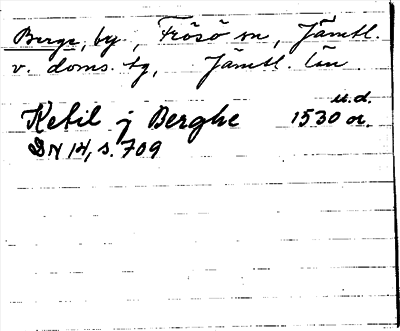 Berge, by, Frösö sn, Jämtl.
v. doms. tg, Jämtl. län
u.d.
Ketil j Berghe 1530 or.
DN 14, s. 709